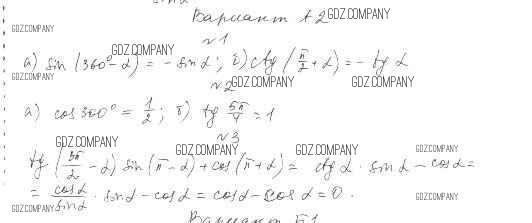 Вариант А2 GDZ.COMPANY
GDZ.COMPANY
№1
GDZ.COMPANY
а) sin (360° - α) = - sin α; б) ctg (π/2 + α) = - tg α
GDZ.COMPANY
№2
GDZ.COMPANY GDZ.COMPANY
а) cos 300° = 1/2; б) tg 5π/4 = 1
№3
GDZ.COMPANY GDZ.COMPANY GDZ.COMPANY GDZ.COMPANY
tg (3π/2 - α) sin (π - α) + cos (π + α) = ctg α · sin α - cos α =
= cos α / sin α · sin α - cos α = cos α - cos α = 0.
GDZ.COMPANY GDZ.COMPANY
Вариант Б1